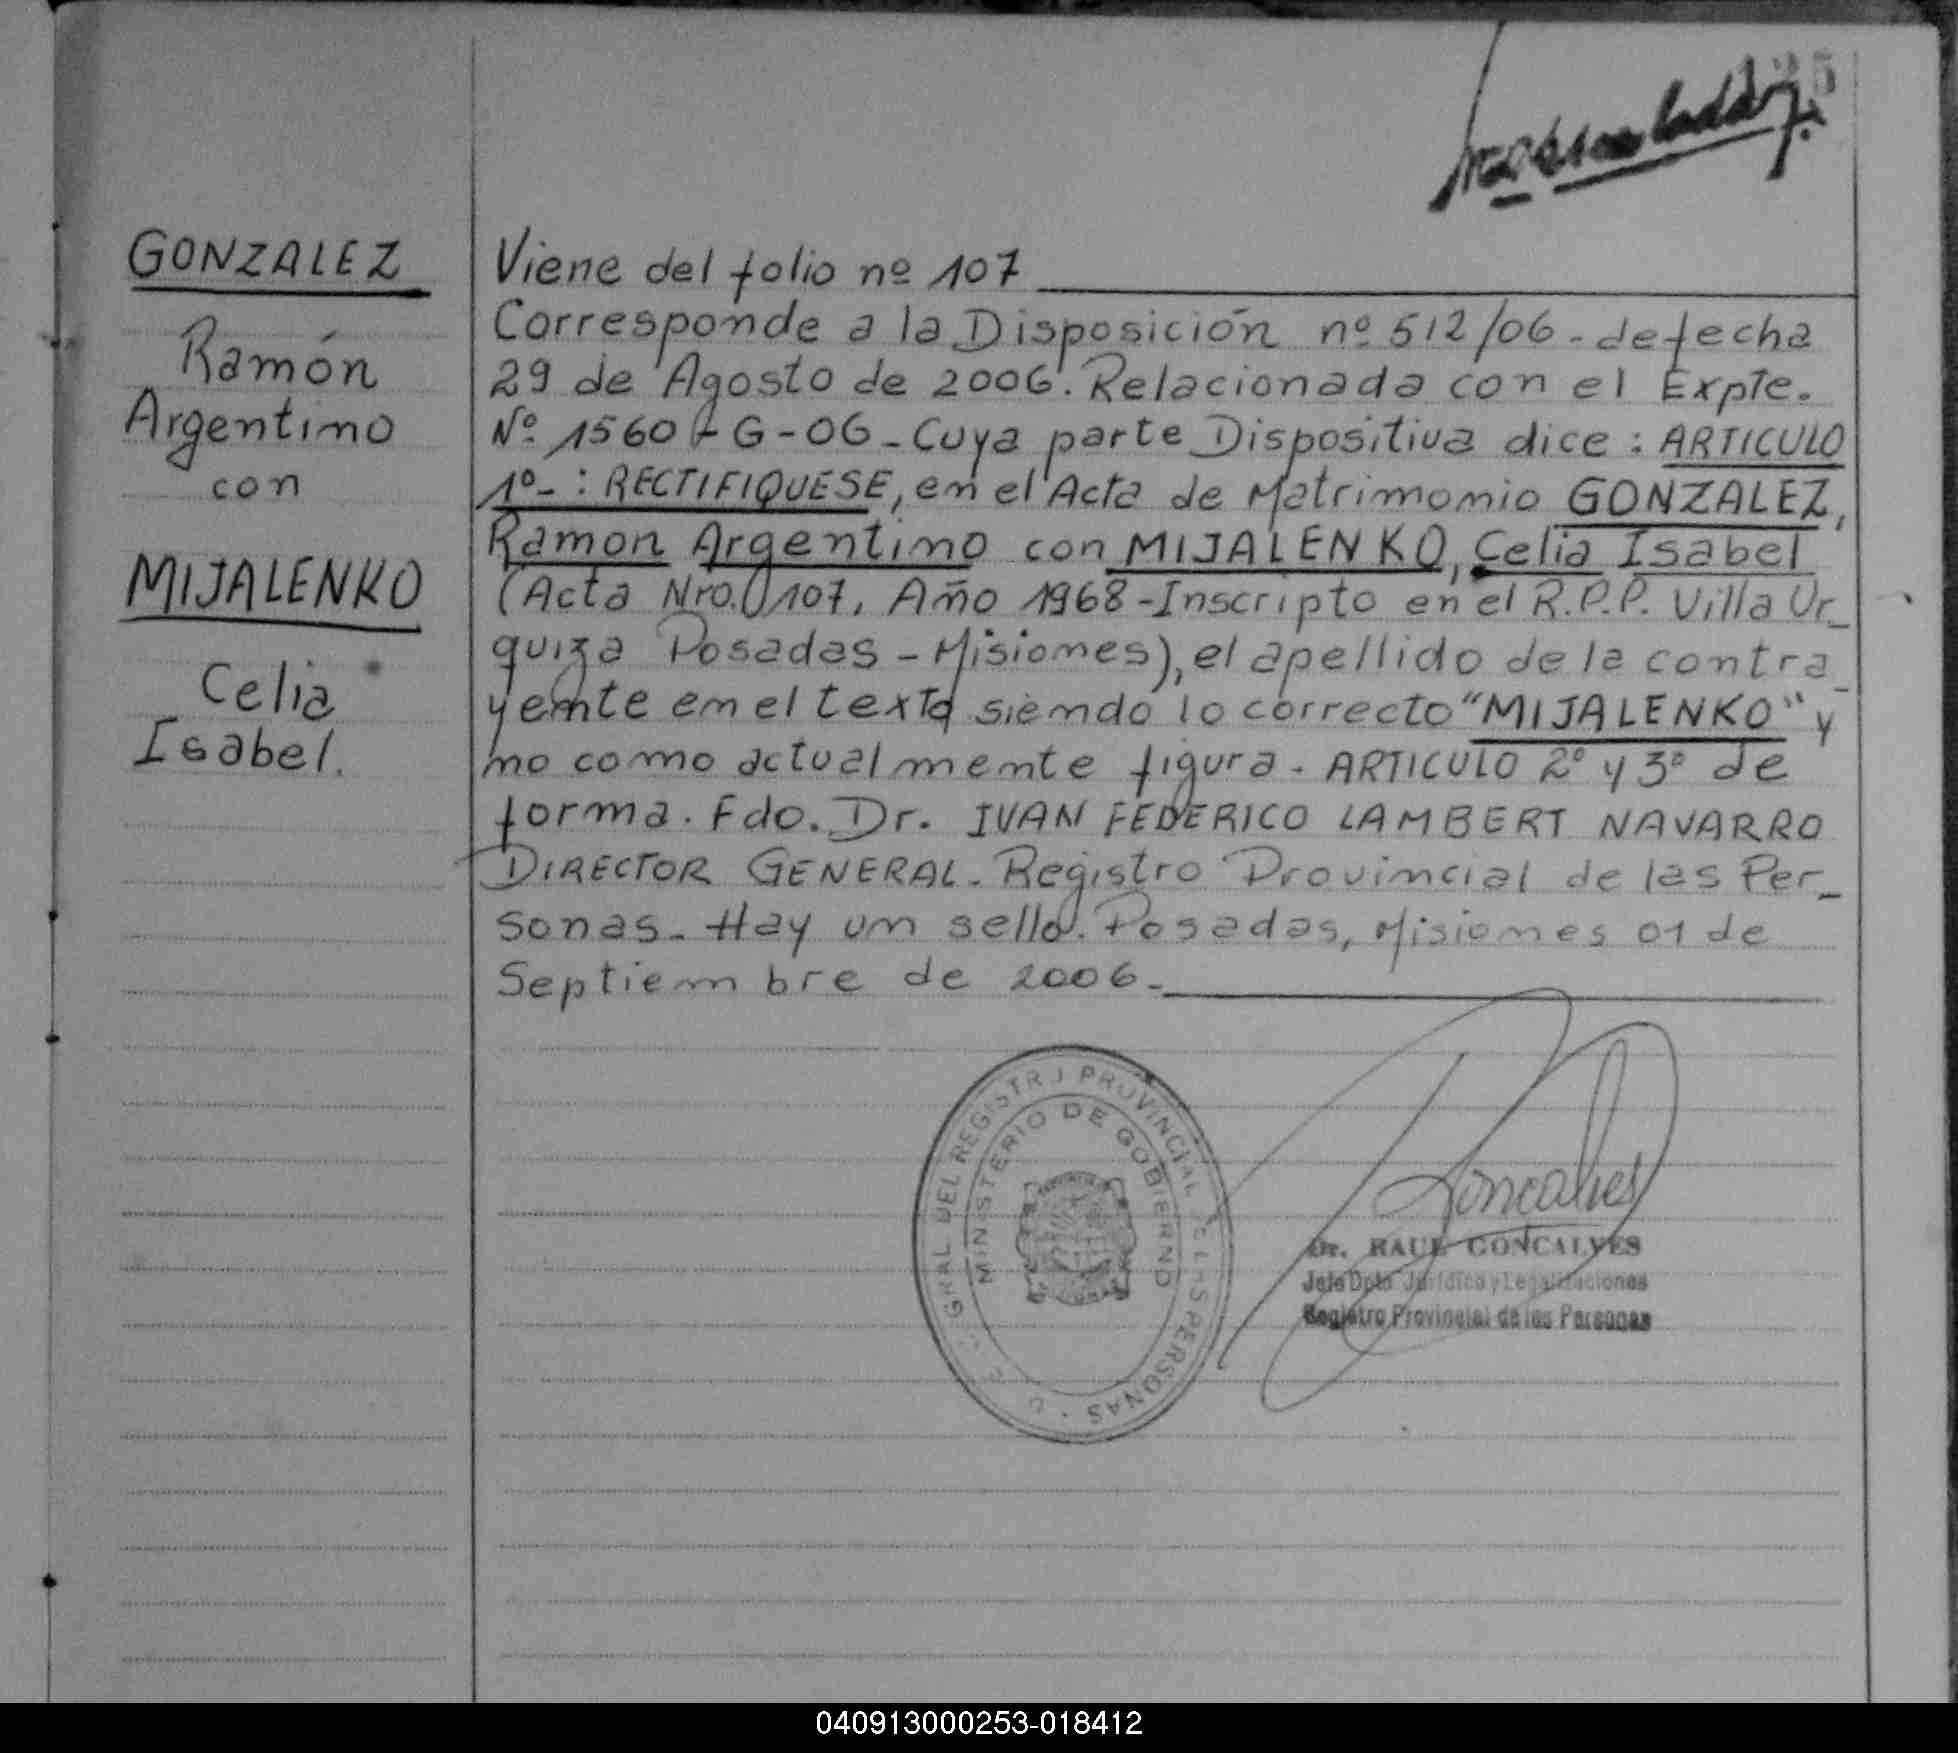 GONZALEZ
Ramón
Argentino
con
MIJALENKO
Celia
Isabel.
Viene del folio nº 107
Corresponde a la Disposición nº 512/06 - de fecha
29 de Agosto de 2006. Relacionada con el Expte.
Nº 1560 - G - 06 - Cuya parte Dispositiva dice : ARTICULO
1º - : RECTIFIQUESE, en el Acta de Matrimonio GONZALEZ,
Ramon Argentino con MIJALENKO, Celia Isabel
(Acta Nro. 107, Año 1968 - Inscripto en el R.P.P. Villa Ur_
quiza Posadas - Misiones), el apellido de la contra_
yente en el texto siendo lo correcto "MIJALENKO" y
no como actualmente figura. ARTICULO 2º y 3º de
forma. Fdo. Dr. IVAN FEDERICO LAMBERT NAVARRO
DIRECTOR GENERAL. Registro Provincial de las Per_
sonas - Hay un sello. Posadas, Misiones 01 de
Septiembre de 2006.-
GRAL DEL REGISTRO PROVINCIAL DE LAS PERSONAS
MINISTERIO DE GOBIERNO
Goncalves
Dr. RAUL GONCALVES
Jefe Dpto Jurídico y Legalizaciones
Registro Provincial de las Personas
040913000253-018412